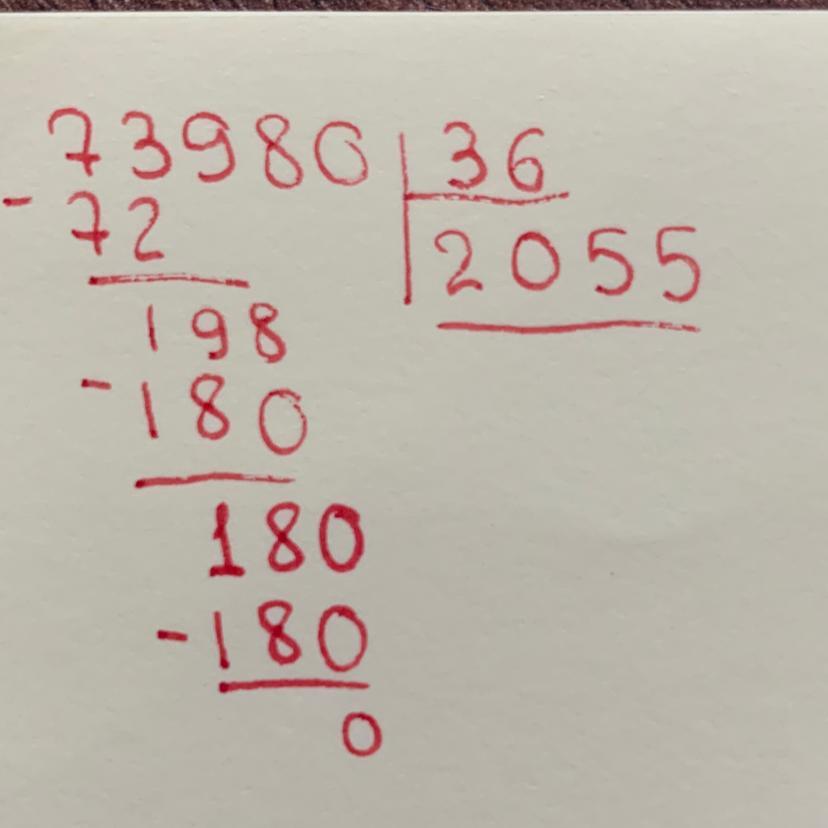 73980 36
- 72 2055
198
- 180
180
- 180
0